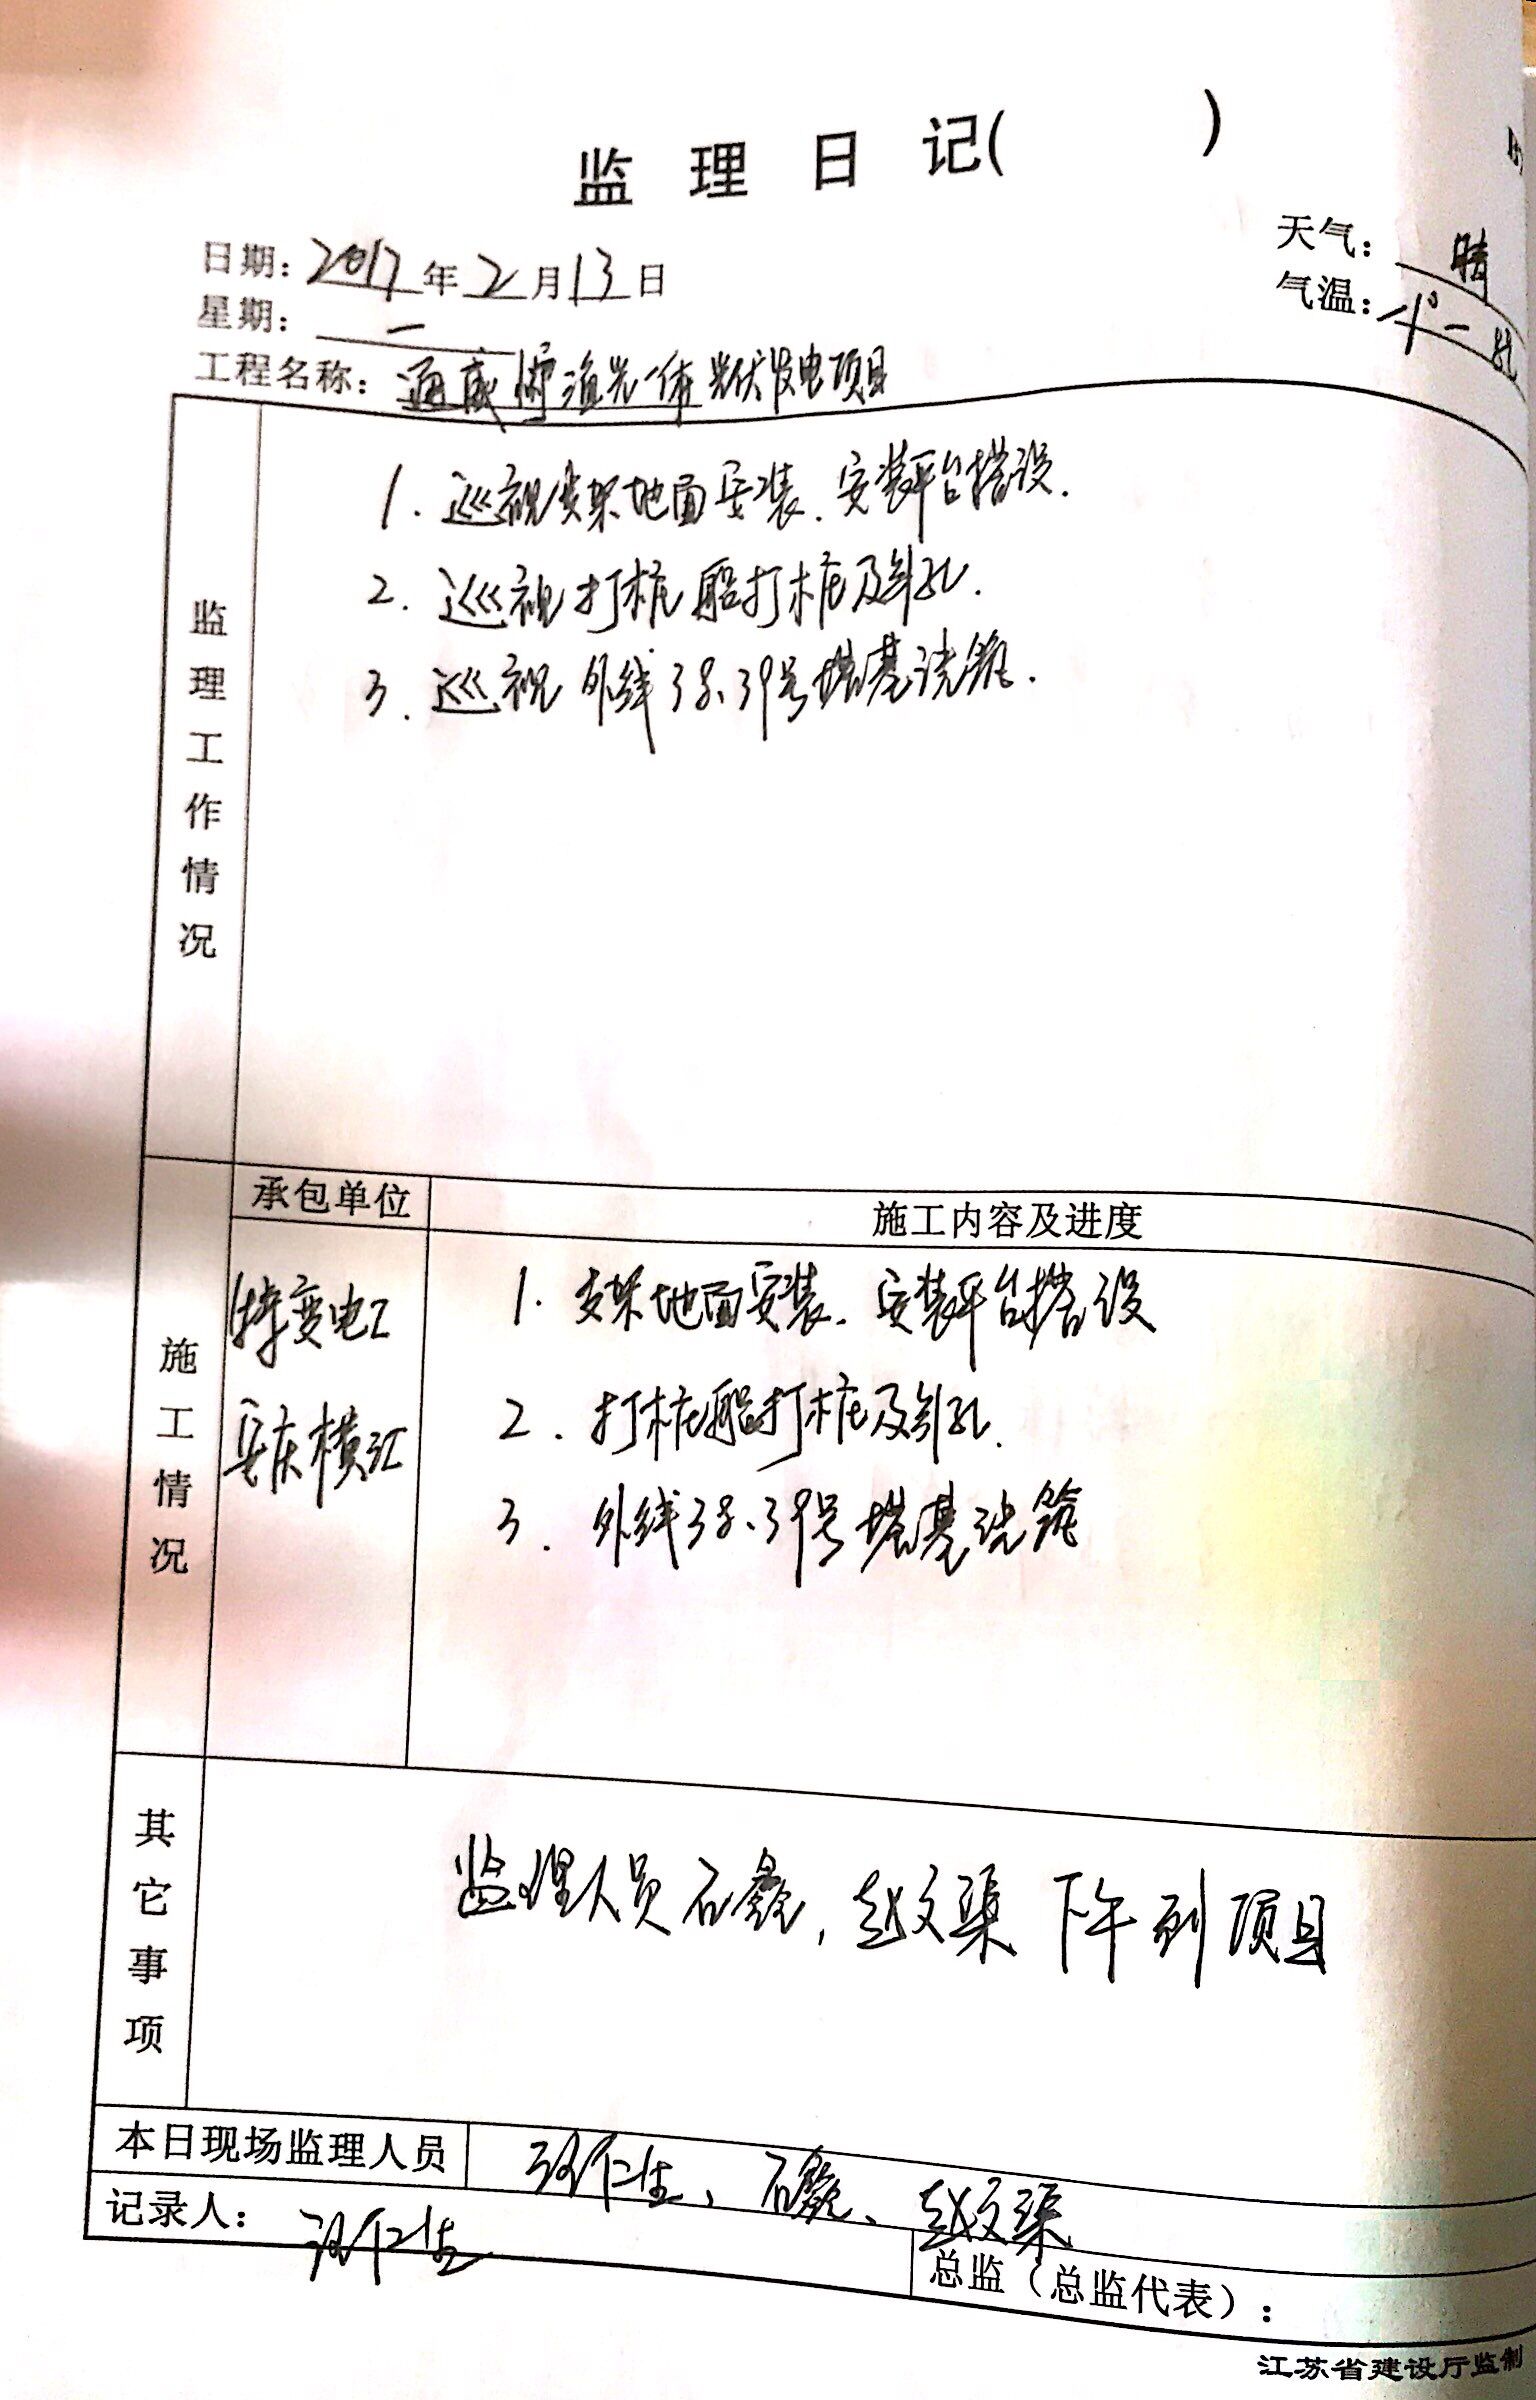 监理日记( )
日期:2017年2月13日
天气:晴
星期:一
气温:
工程名称:通威 渔光一体光伏发电项目
监理工作情况
1.巡视支架地面安装、安装平台搭设.
2.巡视打桩船打桩及引孔.
3.巡视外线38、39号塔基浇筑.
施工情况
承包单位
施工内容及进度
特变电工
安庆横江
1.支架地面安装、安装平台搭设
2.打桩船打桩及引孔.
3.外线38、39号塔基浇筑
其它事项
监理人员石鑫,赵文渠下午到项目
本日现场监理人员
石鑫、赵文渠
记录人:
总监(总监代表):
江苏省建设厅监制